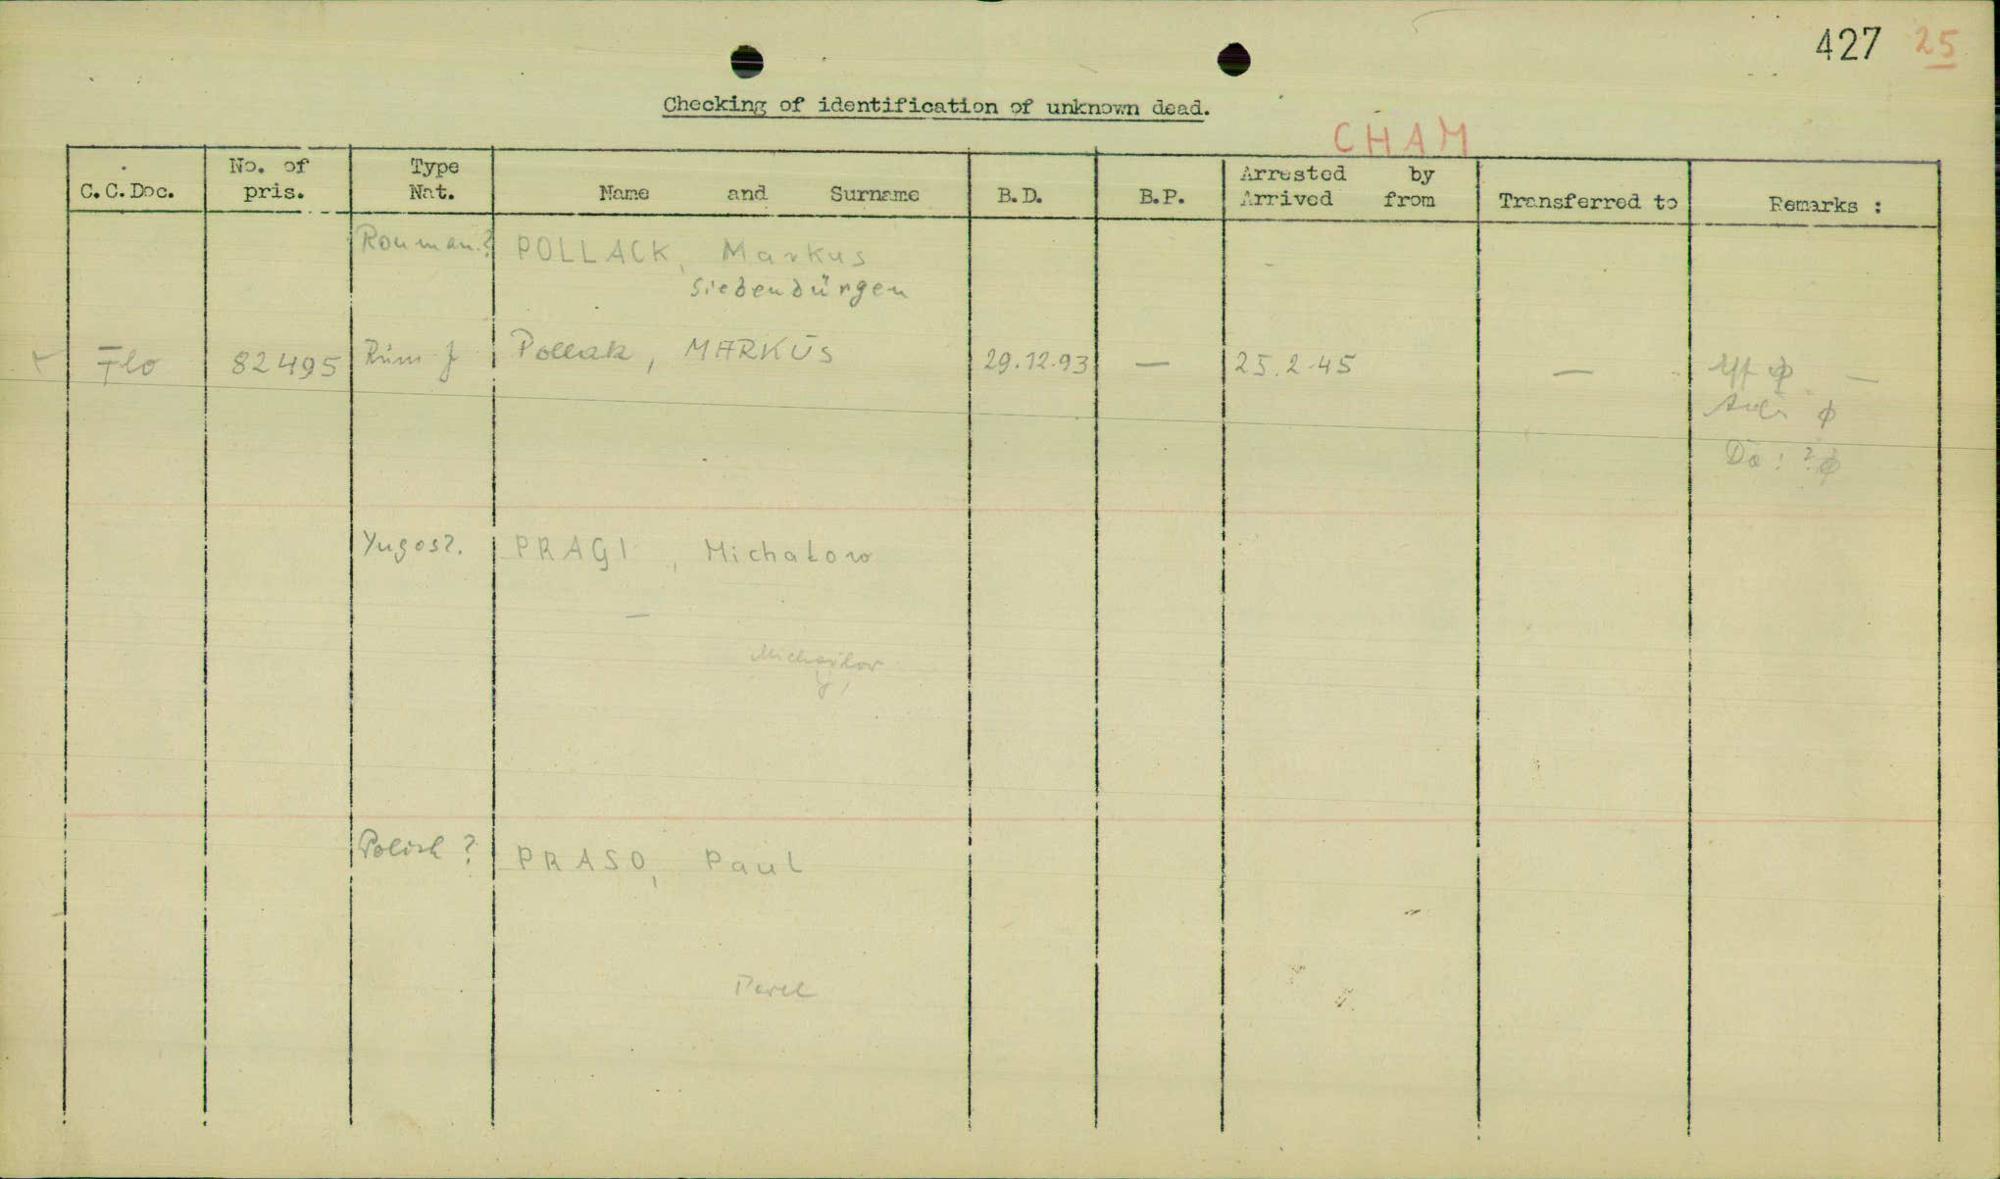 427 25
Checking of identification of unknown dead.
CHAM
C.C.Doc. No. of pris. Type Nat. Name and Surname B.D. B.P. Arrested by Arrived from Transferred to Remarks :
Rouman.? POLLACK, Markus
Siebenbürgen
Flo 82495 Rüm J Pollak, MARKUS 29.12.93 — 25.2.45 — —
Yugos?. PRAGI, Michalow
Michailov
Polish ? PRASO, Paul
Pavel